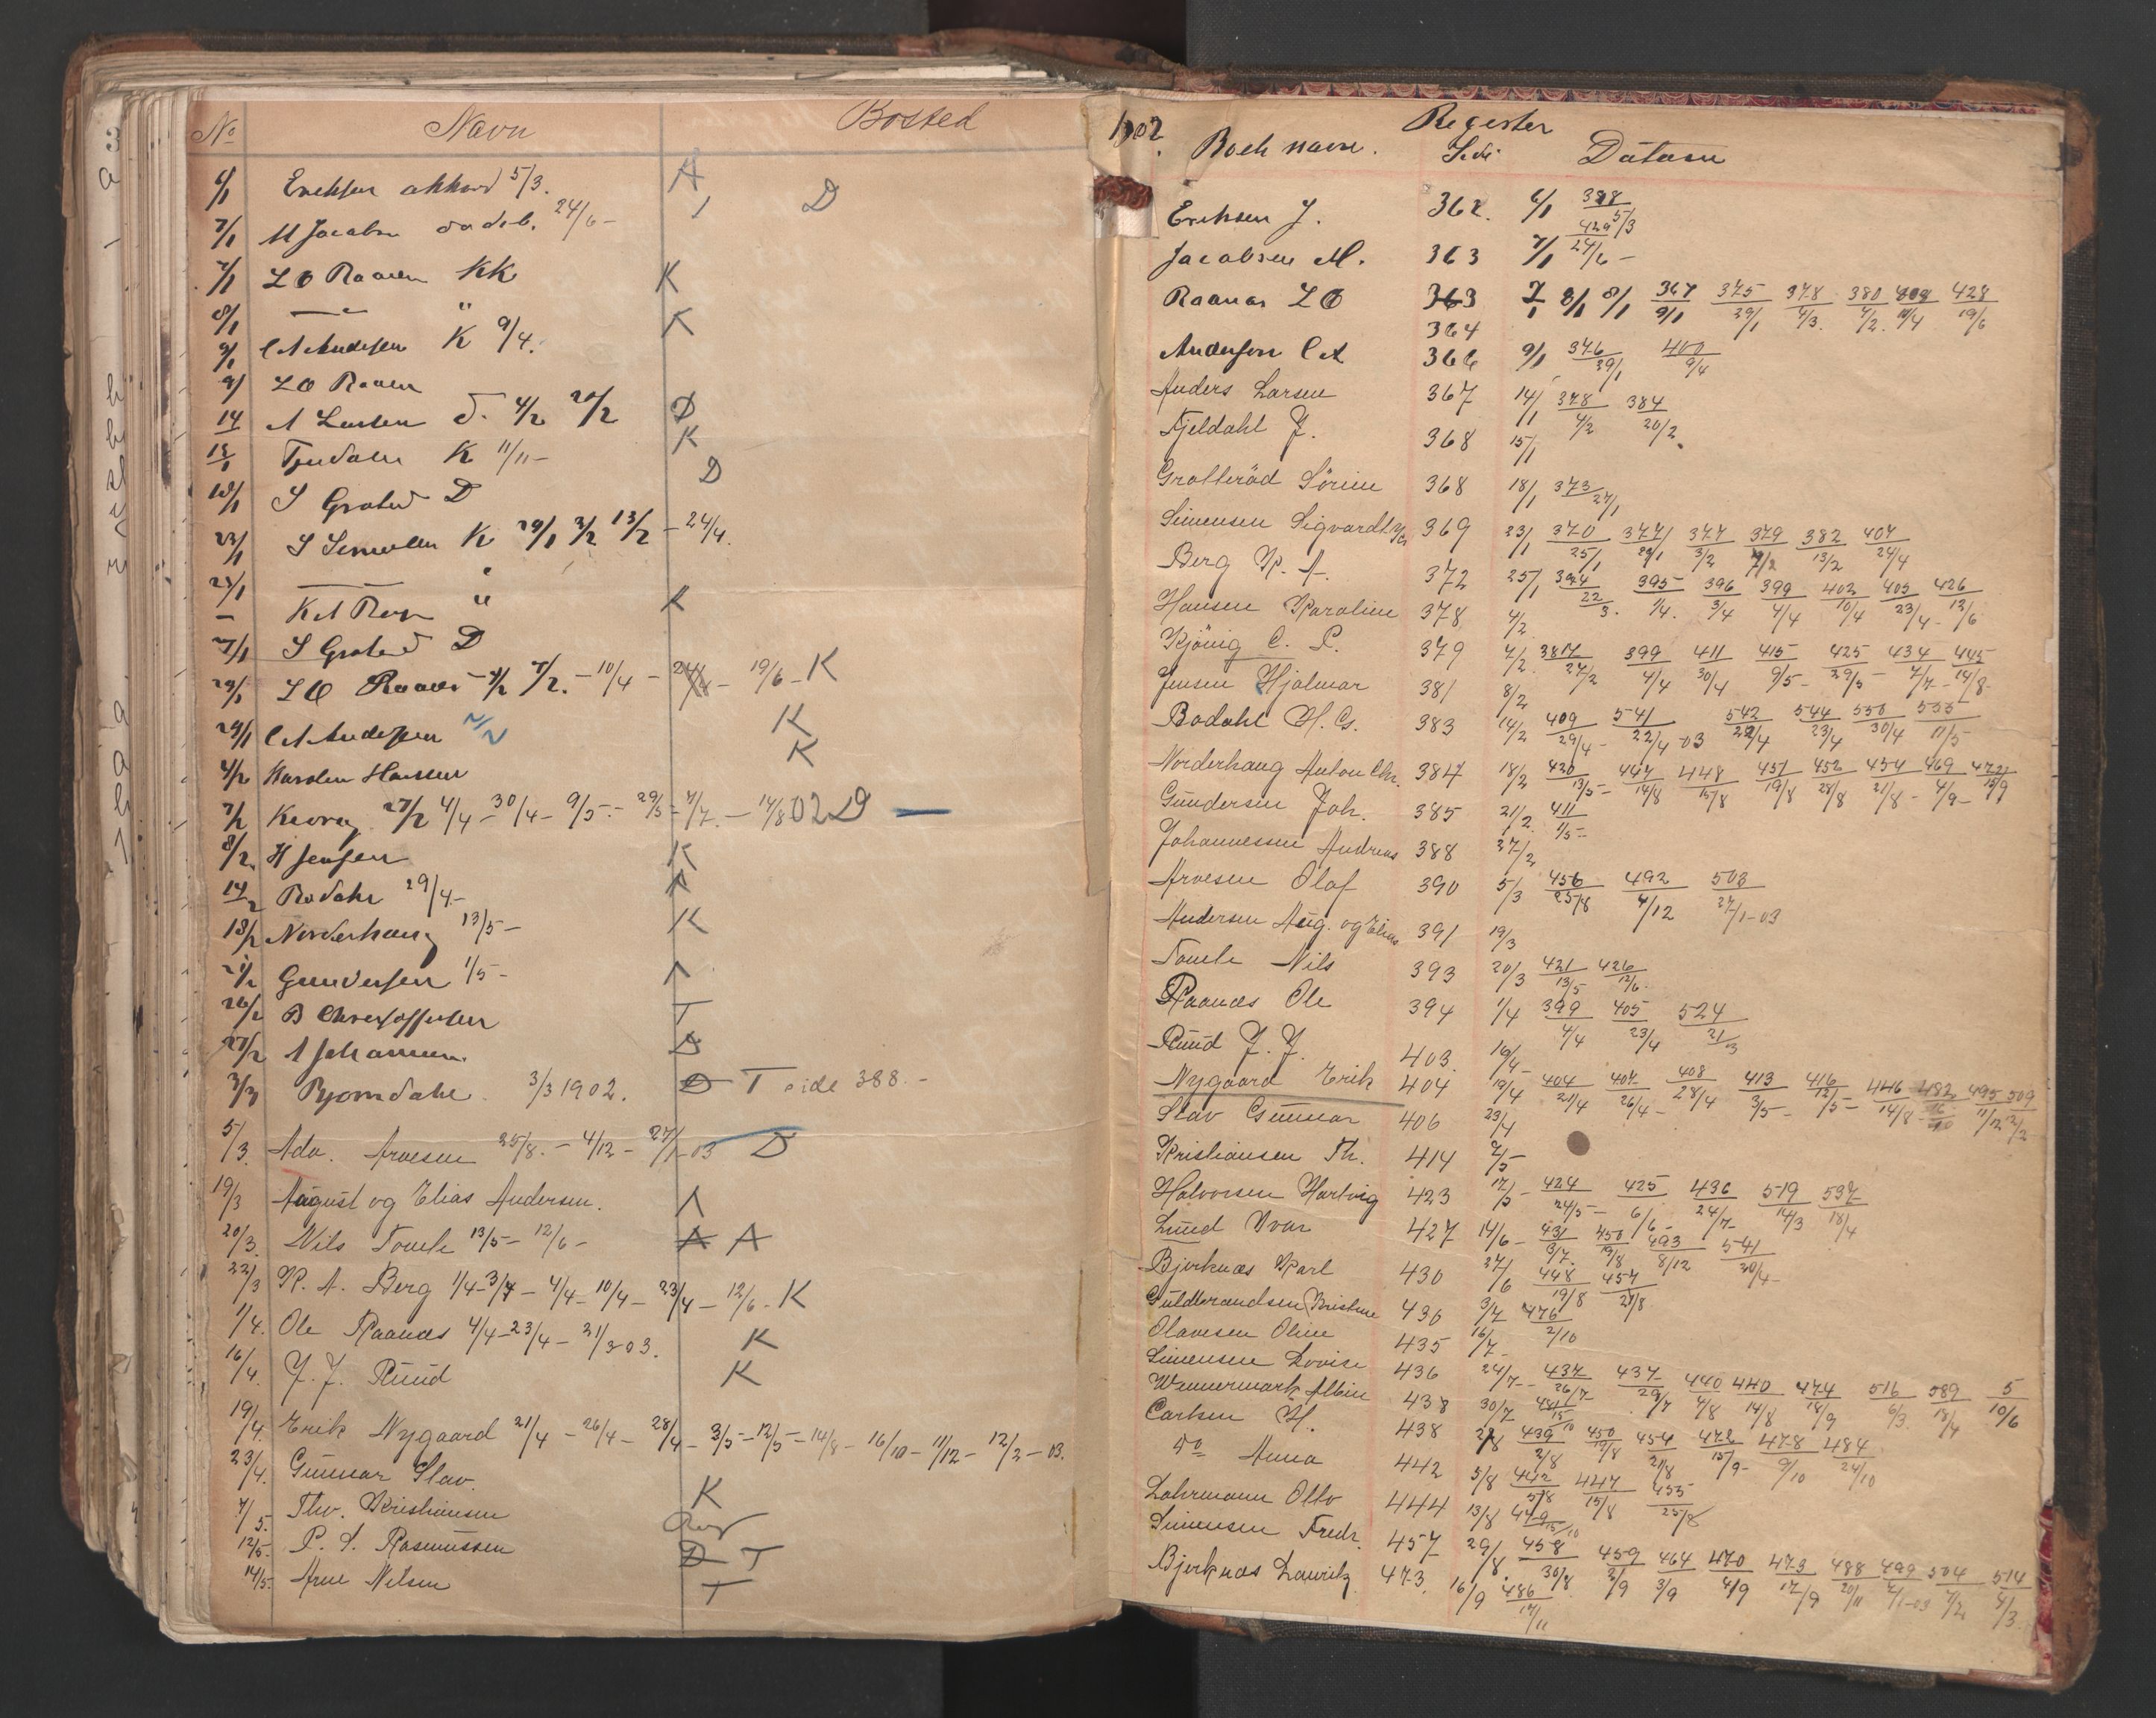 No Navn Bosted
6/1 Erichsen akkord 5/3. A
7/1 M Jacobsen 24/6 - D
7/1 L O Raanes KK K
8/1 — " K
9/1 C A Andersen K 9/4.
9/ L O Raanes
14 A Larsen D. 4/2 20/2 D
15/1 K 11/11 - K
18/1 S D D
23/1 S Simensen K 29/1 3/2 13/2 - 24/4.
25/1 — "
— K A Berg " K
27/1 S D
29/1 L O Raanes 4/2 7/2. - 10/4 - 19/6 - K
29/1 C A Andersen 2/2 K
4/2 Karolin Hansen K
7/2 27/2 4/4 - 30/4 - 9/5 - 29/5 - 7/7. - 14/8 02 D —
8/2. H Jensen K
14/2 Bodahl 29/4 - A
18/2 Norderhaug 13/5 - K
21/2 Gundersen 1/5 - A
26/2 B Christoffersen T
27/2 A Johannesen D
3/3 Bjorndahl 3/3 1902. D T side 388. -
5/3. Adv. Arvesen 25/8. - 4/12 - 27/1-03 D
19/3 August og Elias Andersen. A
20/3. Nils Tomle 13/5 - 12/6 - A A
22/3 K. A. Berg 1/4 - 3/4 - 4/4 - 10/4 - 23/4 - 12/6 - K
1/4. Ole Raanaes 4/4 - 23/4 - 21/3 03. K
16/4. J. J. Ruud K
19/4. Erik Nygaard 21/4 - 26/4 - 28/4 - 3/5 - 12/5 - 14/8 - 16/10 - 11/12 - 12/2 - 03.
23/4. Gunnar Slav. K
7/5. Thv. Kristiansen
12/5. P. S. Rasmussen D T
14/5. Arne Nilsen T
1902. Register
Boek navn. Side Datum
Erichsen J. 362. 6/1 388 5/3
Jacobsen M. 363 7/1 429 24/6 -
Raanas L O 363 7/1 8/1 8/1 367 9/1 375 29/1 378 4/3. 380 7/2. 402 10/4 428 19/6
364
Anderson C A 366 9/1 376 29/1 400 9/4
Anders Larsen 367 14/1 378 4/2 384 20/2
Fjeldahl J. 368 15/1
Grolleröd Sörine 368 18/1 373 27/1
Simensen Sigvardt 369 23/1 370 25/1 377 29/1 377 3/2 379 7/2 382 13/2 407 24/4
Berg K. A. 372 25/1 394 22/3. 395 1/4. 396 3/4 399 4/4 402 10/4 405 23/4 - 426 12/6
Hansen Karoline 378 4/2
Kjönig C. P. 379 7/2. 387 27/2 399 4/4 411 30/4 415 9/5 - 425 29/5 - 434 7/7 - 445 14/8 -
Jensen Hjalmar 381 8/2
Bodahl H. Cs. 383 14/2 409 29/4 - 541 22/4 03 542 22/4 544 23/4 550 30/4 555 11/5
Norderhaug Anton Chr. 384 18/2 420 13/5 - 447 14/8 448 15/8 451 19/8 452 20/8 454 21/8 - 469 4/9 - 472 15/9
Gundersen Joh. 385 21/2. 411 1/5 -
Johannessen Andreas 388 27/2
Arvesen Olaf 390 5/3 456 25/8 492 4/12 503 27/1-03
Andersen Aug. og Elias 391 19/3
Tomle Nils 393 20/3 421 13/5 426 12/6.
Raanaes Ole 394 1/4 399 4/4 405 23/4 524 21/3
Ruud J. J. 403. 16/4 -
Nygaard Erik 404 19/4 404 21/4 407 26/4 - 408 28/4 413 3/5 - 416 12/5 - 446 14/8 - 482 16/10 495 11/12 509 12/2
Slav Gunnar 406 23/4
Kristiansen Th. 414 7/5 -
Halvorsen Hartvig 423 12/5 - 424 24/5 - 425 6/6 - 436 24/7 - 519 14/3 537 18/4
Lund Ivar 427 14/6 - 431 3/7. 450 19/8 493 8/12 541 20/4 -
Bjerknes Karl 430 27/6 448 19/8 457 27/8.
Guldbrandsen Kristine 430 3/7 476 2/10
Olavesen Oline 435 16/7 -
Simensen Lovise 436 24/7 - 437 26/7 437 29/7 440 4/8 440 14/8 474 18/9 516 6/3 589 18/4 5 10/6
Wennermark Albin 438 30/7 481 15/10
Carlsen H. 438 2/8 439 2/8 450 19/8 454 21/8 472 15/9 - 478 9/10 484 24/10
do Anna 442 5/8 442 5/8 447 15/8 455 25/8
Lohrmann Otto 444 13/8 479 15/10
Simensen Fredr. 457 29/8. 458 30/8 459 2/9 464 3/9 470 4/9 473 17/9 488 20/11 499 7/1-03 504 7/2 514 4/3
Bjerknes Lauritz. 473. 16/9 486 17/11